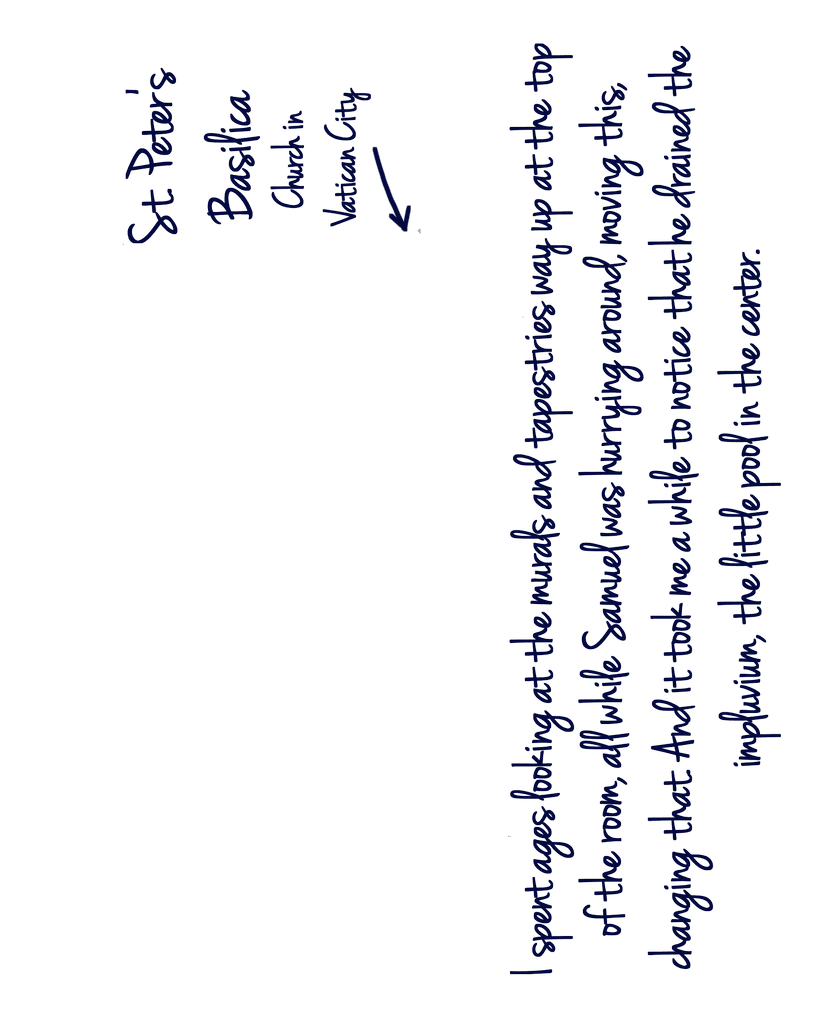 St. Peter's
Basilica
Church in
Vatican City
I spent ages looking at the murals and tapestries way up at the top
of the room, all while Samuel was hurrying around, moving this,
changing that. And it took me a while to notice that he drained the
impluvium, the little pool in the center.